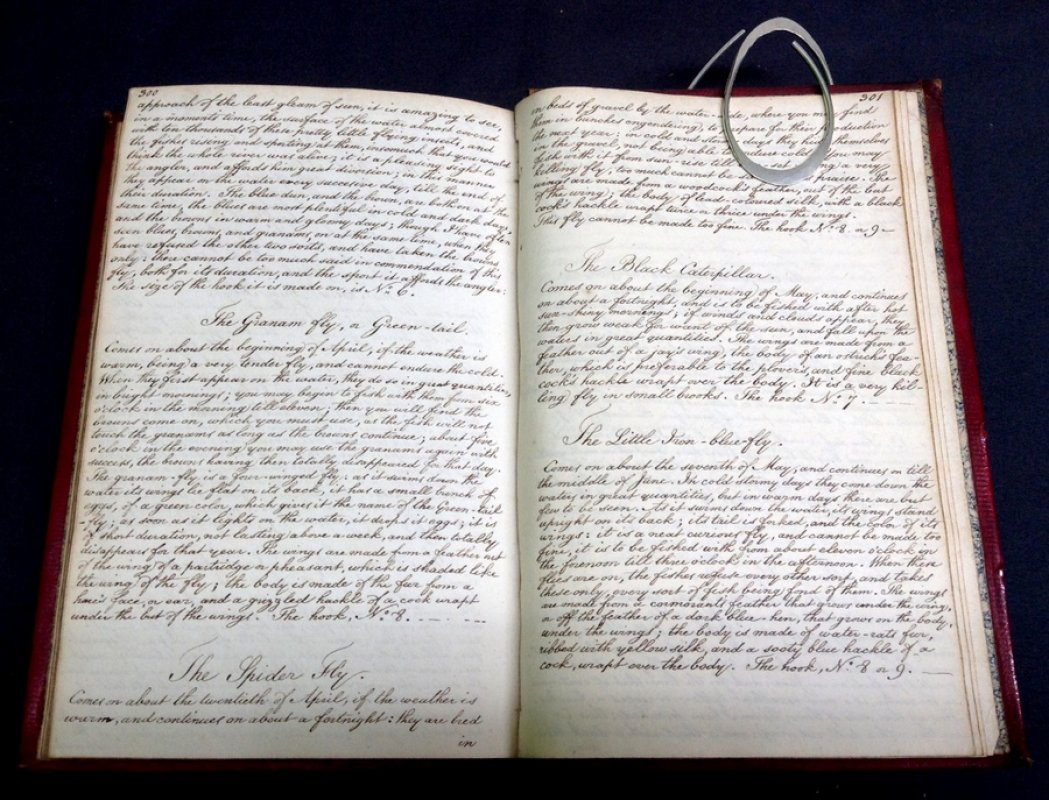 300
approach of the least gleam of sun, it is amazing to see,
in a moments time, the surface of the water almost covered
with ten thousands of these pretty little flying insects, and
the fishes rising and sporting at them, insomuch that you would
think the whole river was alive; it is a pleasing sight to
the angler, and affords him great divertion; in this manner
they appear on the water every successive day, till the end of
their duration. The blue dun, and the brown, are both on at the
same time, the blues are most plentiful in cold and dark days,
and the browns in warm and gloomy days; though I have often
seen blues, browns, and granams, on at the same time, when they
have refused the other two sorts, and have taken the browns
only: there cannot be too much said in commendation of this
fly, both for its duration, and the sport it affords the angler:
The size of the hook it is made on, is No. 6.
The Granam fly, or Green-tail.
Comes on about the beginning of April, if the weather is
warm, being a very tender fly, and cannot endure the cold.
When they first appear on the water, they do so in great quantities,
in bright mornings; you may begin to fish with them from six
o'clock in the morning till eleven; then you will find the
browns come on, which you must use, as the fish will not
touch the granams as long as the browns continue; about five
o'clock in the evening you may use the granams again with
success, the browns having then totally disappeared for that day.
The granam-fly is a four-winged fly: as it swims down the
water its wings lie flat on its back, it has a small bunch of
eggs, of a green color, which gives it the name of the Green-tail
-fly; as soon as it lights on the water, it drops it eggs; it is
of short duration, not lasting above a week, and then totally
disappears for that year. The wings are made from a feather out
of the wing of a partridge or pheasant, which is shaded like
the wing of the fly; the body is made of the fur from a
hare's face, or ear, and a grizzled hackle of a cock wrapt
under the but of the wings. The hook, No. 8.
The Spider Fly.
Comes on about the twentieth of April, if the weather is
warm, and continues on about a fortnight: they are bred
in
301
in beds of gravel by the water-side, where you may find
them in bunches engendering, to prepare for their production
the next year: on cold and stormy days they hide themselves
in the gravel, not being able to endure cold. You may
fish with it from sun-rise till being a very
killing fly, too much cannot be praise. The
wings are made from a woodcock's feather, out of the but
of the wing, the body of lead-coloured silk, with a black
cock's hackle wrapt twice or thrice under the wings.
This fly cannot be made too fine. The hook No. 8 or 9
The Black Caterpillar.
Comes on about the beginning of May, and continues
on about a fortnight, and is to be fished with after hot
sun-shiny mornings; if winds and clouds appear, they
then grow weak for want of the sun, and fall upon the
waters in great quantities. The wings are made from a
feather out of a jay's wing, the body of an ostrich's fea-
ther, which is preferable to the plovers, and fine black
cock's hackle wrapt over the body. It is a very kil-
ling fly in small brooks. The hook No. 7.
The Little Iron-blue-fly.
Comes on about the seventh of May, and continues on till
the middle of June. In cold stormy days they come down the
waters in great quantities, but in warm days there are but
few to be seen. As it swims down the water, its wings stand
upright on its back; its tail is forked, and the color of its
wings: it is a neat curious fly, and cannot be made too
fine, it is to be fished with from about eleven o'clock in
the forenoon till three o'clock in the afternoon. When these
flies are on, the fishes refuse every other sort, and takes
these only, every sort of fish being fond of them. The wings
are made from a cormorants feather that grows under the wing,
or off the feather of a dark blue-hen, that grows on the body,
under the wings; the body is made of water-rats fur,
ribbed with yellow silk, and a sooty blue hackle of a
cock, wrapt over the body. The hook, No. 8 or 9.